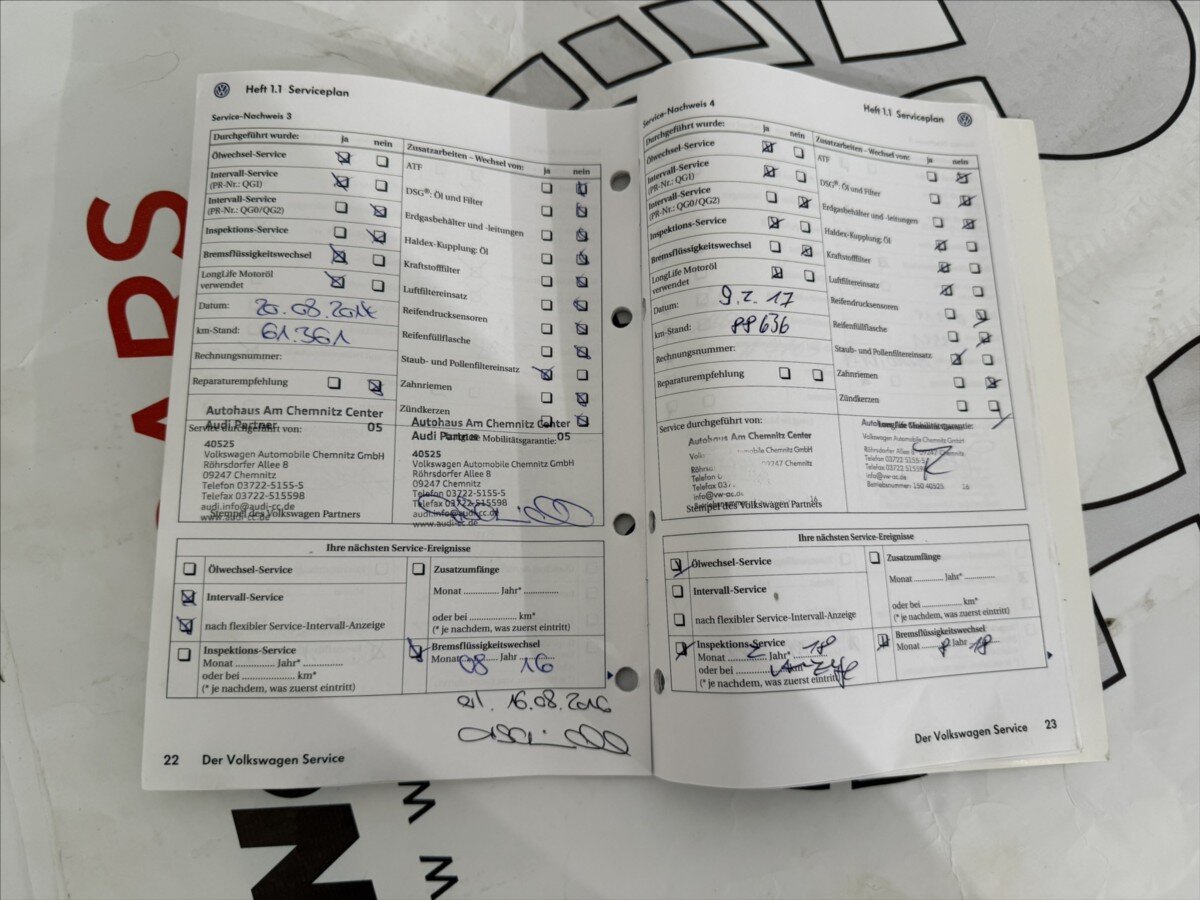 Heft 1.1 Serviceplan
Service-Nachweis 3
Durchgeführt wurde: ja nein
Ölwechsel-Service
Intervall-Service
(PR-Nr.: QG1)
Intervall-Service
(PR-Nr.: QG0/QG2)
Inspektions-Service
Bremsflüssigkeitswechsel
LongLife Motoröl
verwendet
Datum: 20.08.2014
km-Stand: 61.361
Rechnungsnummer:
Reparaturempfehlung
Zusatzarbeiten – Wechsel von: ja nein
ATF
DSG®: Öl und Filter
Erdgasbehälter und -leitungen
Haldex-Kupplung: Öl
Kraftstofffilter
Luftfiltereinsatz
Reifendrucksensoren
Reifenfüllflasche
Staub- und Pollenfiltereinsatz
Zahnriemen
Zündkerzen
Service durchgeführt von:
Autohaus Am Chemnitz Center
Audi Partner 05
40525
Volkswagen Automobile Chemnitz GmbH
Röhrsdorfer Allee 8
09247 Chemnitz
Telefon 03722-5155-5
Telefax 03722-515598
audi.info@audi-cc.de
www.audi-cc.de
Stempel des Volkswagen Partners
Autohaus Am Chemnitz Center
Audi Partner 05
Mobilitätsgarantie:
40525
Volkswagen Automobile Chemnitz GmbH
Röhrsdorfer Allee 8
09247 Chemnitz
Telefon 03722-5155-5
Telefax 03722-515598
audi.info@audi-cc.de
www.audi-cc.de
Ihre nächsten Service-Ereignisse
Ölwechsel-Service
Intervall-Service
nach flexibler Service-Intervall-Anzeige
Inspektions-Service
Monat ............. Jahr* .............
oder bei .................. km*
(* je nachdem, was zuerst eintritt)
Zusatzumfänge
Monat ............ Jahr* .............
oder bei .................. km*
(* je nachdem, was zuerst eintritt)
Bremsflüssigkeitswechsel
Monat 08 Jahr 16
16.08.2016
22 Der Volkswagen Service
Heft 1.1 Serviceplan
Service-Nachweis 4
Durchgeführt wurde: ja nein
Ölwechsel-Service
Intervall-Service
(PR-Nr.: QG1)
Intervall-Service
(PR-Nr.: QG0/QG2)
Inspektions-Service
Bremsflüssigkeitswechsel
LongLife Motoröl
verwendet
Datum: 9.2.17
km-Stand: 88636
Rechnungsnummer:
Reparaturempfehlung
Zusatzarbeiten – Wechsel von: ja nein
ATF
DSG®: Öl und Filter
Erdgasbehälter und -leitungen
Haldex-Kupplung: Öl
Kraftstofffilter
Luftfiltereinsatz
Reifendrucksensoren
Reifenfüllflasche
Staub- und Pollenfiltereinsatz
Zahnriemen
Zündkerzen
Service durchgeführt von:
Autohaus Am Chemnitz Center
mobile Chemnitz GmbH
09247 Chemnitz
info@vw-ac.de
16
Stempel des Volkswagen Partners
Mobilitätsgarantie:
Volkswagen Automobile Chemnitz GmbH
Röhrsdorfer Allee 8 09247 Chemnitz
Telefon 03722-5155-5
Telefax 03722-515598
info@vw-ac.de
Betriebsnummer: 150 40525 16
Ihre nächsten Service-Ereignisse
Ölwechsel-Service
Intervall-Service
nach flexibler Service-Intervall-Anzeige
Inspektions-Service
Monat 2 Jahr* 18
oder bei km*
(* je nachdem, was zuerst eintritt)
Zusatzumfänge
Monat ............ Jahr* .............
oder bei .................. km*
(* je nachdem, was zuerst eintritt)
Bremsflüssigkeitswechsel
Monat 8 Jahr 18
Der Volkswagen Service 23